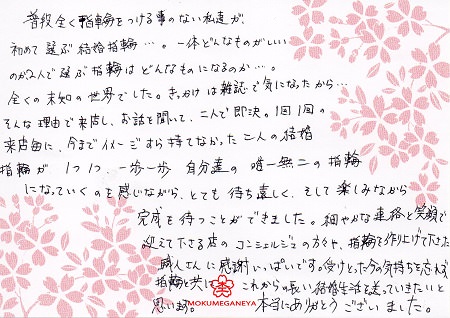 普段全く指輪をつける事のない私達が
初めて選ぶ結婚指輪…。一体どんなものがいい
のか2人で選ぶ指輪はどんなものになるのか…。
全くの未知の世界でした。きっかけは雑誌で気になったから…
そんな理由で来店し、お話を聞いて、二人で即決。1回1回の
来店毎に、今までイメージすら持てなかった二人の結婚
指輪が 1つ1つ、一歩一歩 自分達の 唯一無二の指輪
になっていくのを感じながら、とても待ち遠しく、そして楽しみながら
完成を待つことができました。細やかな連絡と笑顔で
迎えて下さる店のコンシェルジュの方々や、指輪を作り上げて下さった
職人さんに感謝いっぱいです。受けとった今の気持ちを忘れず
指輪と共に これから長い結婚生活を送っていきたいと
思います。 本当にありがとうございました。
MOKUMEGANEYA